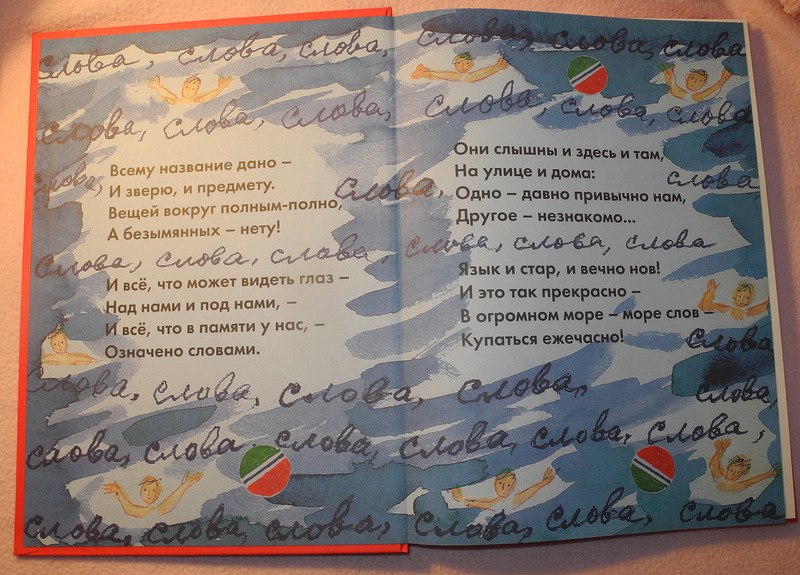 слова, слова, слова,
слова, слова, слова,
Всему название дано –
слова,
И зверю, и предмету.
слова,
Вещей вокруг полным-полно,
А безымянных – нету!
слова, слова, слова,
И всё, что может видеть глаз –
Над нами и под нами, –
И всё, что в памяти у нас, –
Означено словами.
слова, слова, слова,
слова, слова слова,
слова, слова, слова,
слова, слова, слова
слова, слова, слова
Они слышны и здесь и там,
На улице и дома:
слова,
Одно – давно привычно нам,
Другое – незнакомо...
слова, слова, слова
Язык и стар, и вечно нов!
И это так прекрасно –
В огромном море – море слов –
Купаться ежечасно!
слова,
слова, слова,
слова, слова, слова,
слова, слова, слова,